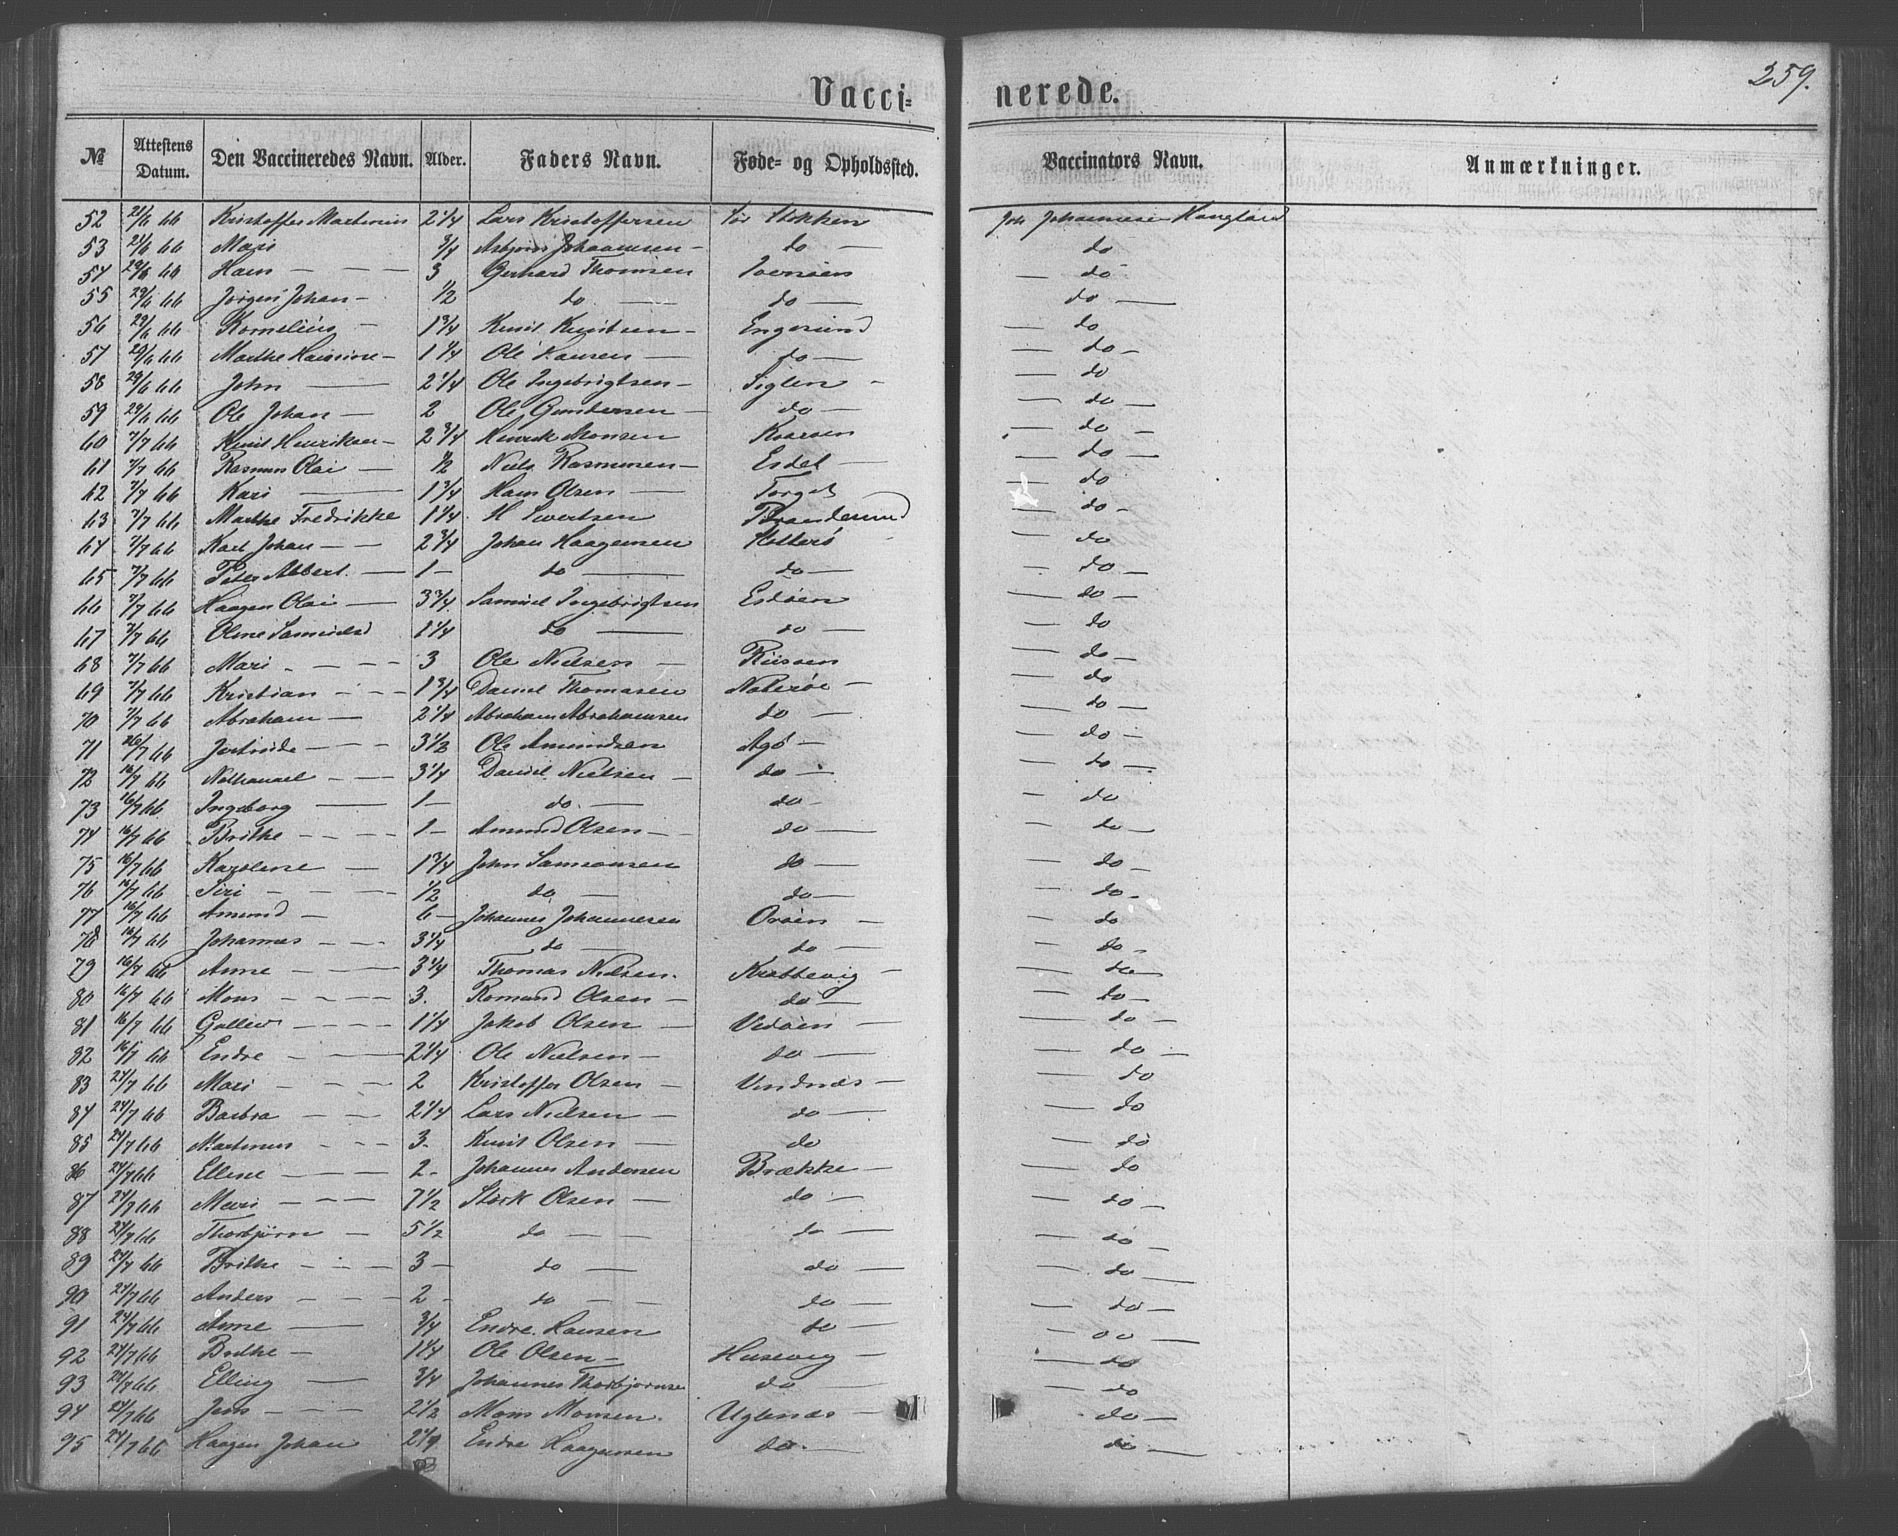 259.
Vacci= nerede.
№ Attestens Datum. Den Vaccineredes Navn. Alder. Faders Navn. Føde= og Opholdssted. Vaccinators Navn. Anmærkninger.
52 21/6 66 Kristoffer Martinus 2 1/4 Lars Kristoffersen Stokken Joh Johannesen
53 21/6 66 Mari 3/4 Asbjørn Johannesen — do — do
54 29/6 66 Hans — — — 3 Gerhard Thomsen — do
55 29/6 66 Jørgen Johan — 1/2 do — do — do —
56 29/6 66 Kornelius — 1 3/4 Knut Knutsen — Engesund — do
57 29/6 66 Marthe Hansine — 1 1/4 Ole Hansen — do — — do —
58 29/6 66 John — 2 1/4 Ole Ingebrigtsen — Siglen — — do
59 29/6 66 Ole Johan — 2 Ole Gundersen — do — — do —
60 7/7 66 Knut Henriksen — 2 3/4 Henrik Monsen Kvaroen — do —
61 7/7 66 Rasmus Olai — 1/2 Niels Rasmusen — Esdet — — do —
62 7/7 66 Kari — 1 3/4 Hans Olsen — Torget — do
63 7/7 66 Marthe Fredrikke 1 1/4 H Sivertsen Brandesund — do —
64 7/7 66 Karl Johan — — 2 3/4 Johan Haagensen Hotterø — do
65 7/7 66 Peter Albert — 1 — do — do — — do —
66 7/7 66 Haagen Olai — 3 3/4 Samuel Ingebrigtsen Esdøen — do —
67 7/7 66 Oline Samuelsd 1 1/4 do — do — — do
68 7/7 66 Mari — — — 3 Ole Nielsen — Riisøen — do —
69 7/7 66 Kristian — — — 1 3/4 Daniel Thomasen Naterøe — — do
70 7/7 66 Abraham — 2 1/4 Abraham Abrahamsen do — — do —
71 26/7 66 Jertrude — — — 3 1/2 Ole Amundsen Agø — — do —
72 16/7 66 Nathanael — — — 3 1/4 Daniel Nielsen — do — — do —
73 16/7 66 Ingeborg — 1 — do — do — — do
74 16/7 66 Brithe — — — 1 — Amund Olsen — — do — — do —
75 16/7 66 Karolene — — 1 3/4 John Samsonsen do — — do —
76 16/7 66 Siri — — — 1/2 do — do — — do —
77 16/7 66 Amund — 6 — Johannes Johannesen Oroen — — do
78 16/7 66 Johannes — — — 3 1/4 do — do — — do —
79 16/7 66 Anne — — — 3 1/4 Thomas Nielsen. Krabbevig — — do —
80 16/7 66 Mons — — — 3. Romund Olsen — do — — do —
81 16/7 66 — — — — 1 1/4 Jakob Olsen — Vedøen — — do —
82 16/7 66 Endre — — — 2 1/4 Ole Nielsen — do — — do —
83 24/7 66 Mari — — — 2 Kristoffer Olsen — Vindnæs — — do
84 24/7 66 Barbra — — — 2 1/4 Lars Nielsen — do — — do
85 24/7 66 Martinus — — — 3. Knut Olsen — do — do
86 24/7 66 Elline — — — 2 — Johannes Andersen Brække — — do
87 24/7 66 Mari — — — 7 1/2 Størk Olsen — do — — do —
88 24/7 66 Thorbjørn — — 5 1/2 do — — do — — do —
89 24/7 66 Brithe — — — 3 — do — do — — do —
90 24/7 66 Anders — — — 2 — do — — do — — do —
91 24/7 66 Anne — 3/4 Endre Hansen do — — do —
92 24/7 66 Brithe — 1 1/4 Ole Olsen — Husevig — — do
93 24/7 66 Elling — 3/4 Johannes Thorbjørnse do — — do
94 24/7 66 Jens — — — 2 1/2 Mons Monsen. Uglenæs — do —
95 24/7 66 Haagen Johan 2 1/4 Endre Haagensen do. — do —